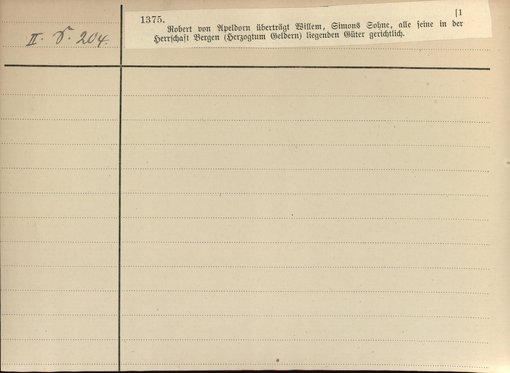 1375. [1
Robert von Apeldorn überträgt Willem, Simons Sohne, alle seine in der
Herrschaft Bergen (Herzogtum Geldern) liegenden Güter gerichtlich.
II. 204.